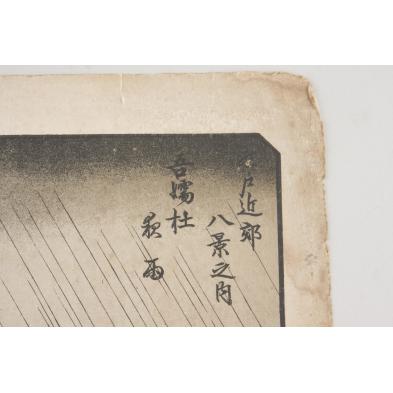 江戸近郊
八景之内
吾嬬杜
夜雨